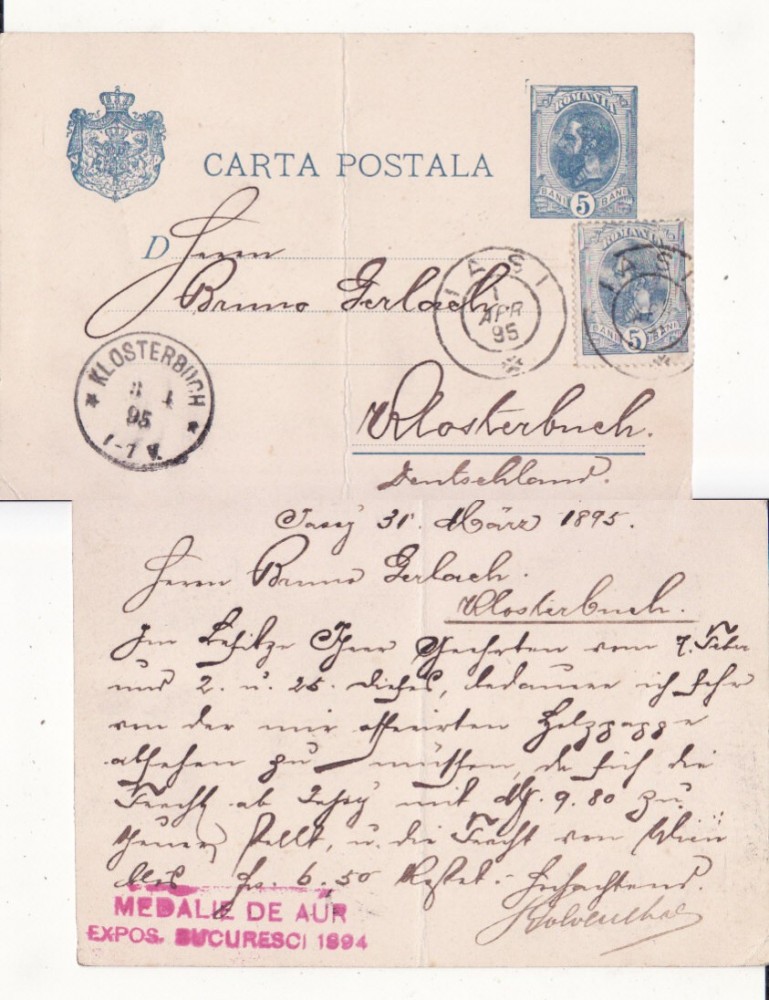 CARTA POSTALA
ROMANIA
BANI 5 BANI
D Herrn
Bruno Gerlach
IASI
1
APR
95
ROMANIA
BANI 5 BANI
IASI
KLOSTERBUCH
95
1-7 V.
Klosterbuch.
Deutschland.
Jassy 31. März 1895.
Herrn Bruno Gerlach.
Klosterbuch.
Im Besitze Ihrer Geehrten vom 7. Feber
und 2. u. 25. dieses, bedauere ich sehr
von der mir offerirten Holzpappe
absehen zu müssen, da sich die
Fracht ab mit M. 9.80 zu
theuer stellt, u. die Fracht von Wien
blos fr. 6.50 kostet.- Hochachtend.
MEDALIE DE AUR
EXPOS. BUCURESCI 1894